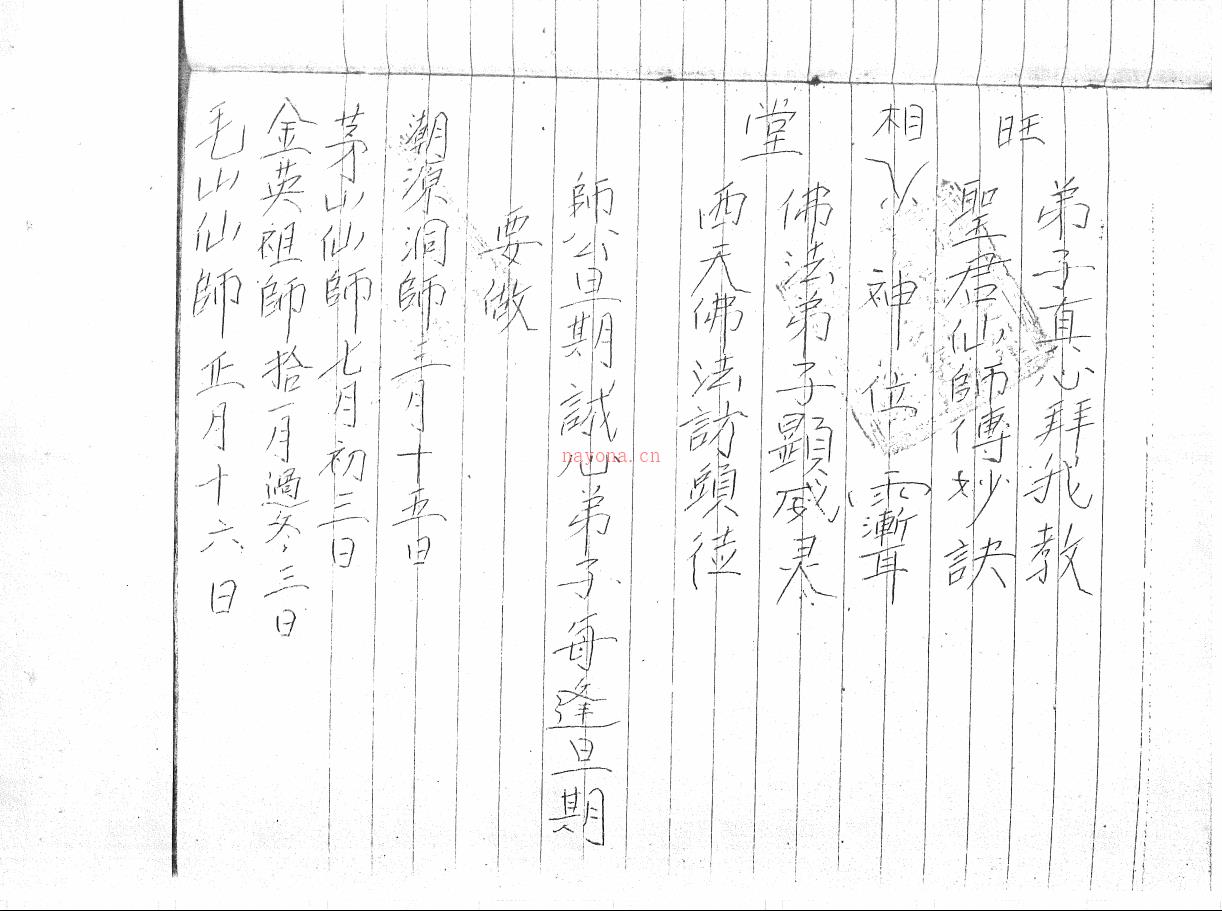 旺
弟子真心拜我教
聖君仙師傳妙訣
相
神位
堂
佛法弟子顯威灵
西天佛法訪頭徒
師公旦期誠心弟子每逢旦期
要做
潮源洞師三月十五日
茅山仙師七月初三日
金英祖師拾一月過冬三日
毛山仙師正月十六日
nayona.cn